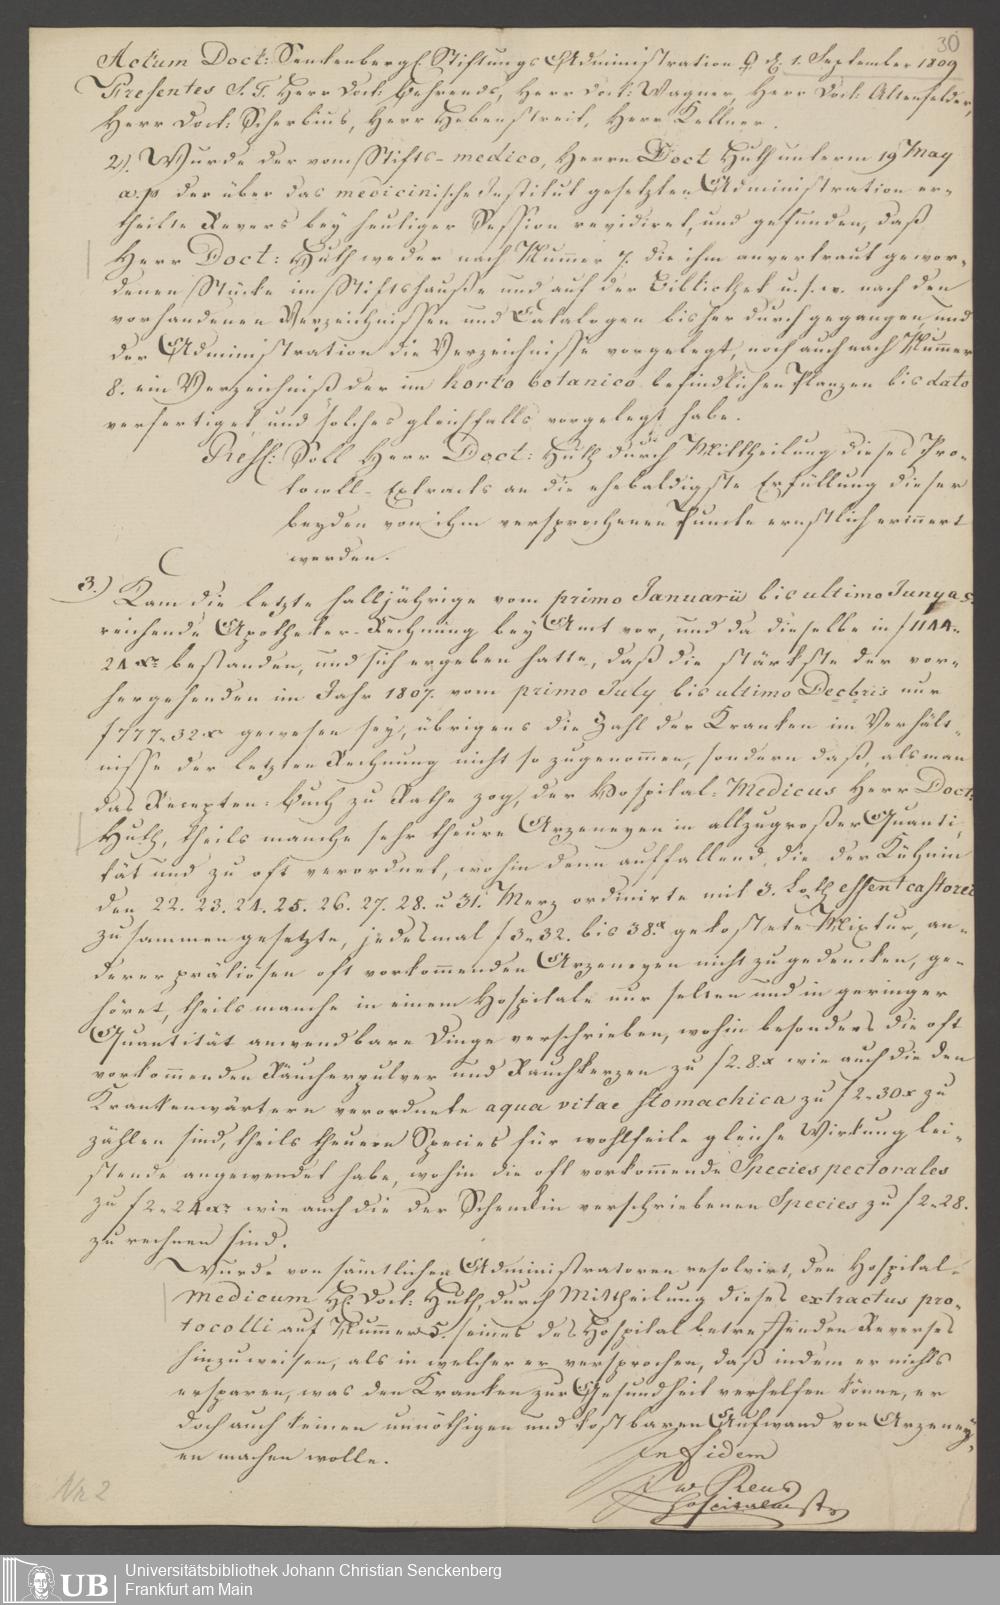 30
Actum Doct: Senckenbergl. Stiftungs Administration ♀ d. 1. September 1809
Presentes S. T. Herr Doct: Behrends, Herr Doct: Wagner, Herr Doct: Altenfelder,
Herr Doct: Scherbius, Herr Hebenstreit, Herr Kellner.
2). Wurde der vom Stifts-medico, Herrn Doct Huth unterm 19 May
a. p. der über das medicinische Institut gesetzten Administration er-
theilte Revers bey heutiger Session revidiret, und gefunden, daß
Herr Doct: Huth weder nach Nummer 7. die ihm anvertraut gewor-
denen Stücke im Stiftshauße und auf der Bibliothek u. s. w. nach den
vorhandenen Verzeichnissen und Catalogen bisher durchgegangen, und
der Administration die Verzeichnisse vorgelegt, noch auch nach Nummer
8. ein Verzeichniß der im horto botanico befindlichen Planzen bis dato
verfertiget, und solches gleichfalls vorgelegt habe.
Resl: Soll Herr Doct: Huth durch die Mittheilung dieses Pro-
tocoll-Extracts an die ehebaldigste Erfüllung dieser
beyden von ihm versprochenen Puncte ernstlich erinnert
werden.
3.) Kam die letzte halljährige vom primo Januarii bis ultimo Juny a. c.
reichende Apotheker-Rechnung bey Amt vor, und da dieselbe in f 1144„
24 xr bestanden, und sich ergeben hatte, daß die stärkste der vor-
hergehenden im Jahr 1807. vom primo July bis ultimo Decbris nur
f 777„32 x gewesen sey, übrigens die Zahl der Kranken im Verhält-
nisse der letzten Rechnung nicht so zugenommen, sondern daß, als man
das Recepten-Buch zu Rathe zog, der Hospital-Medicus Herr Doct:
Huth, theils manche sehr theure Arzeneyen in allzugroßer Quanti-
tät und zu oft verordnet, wohin denn auffallend, die der Kühnin
den 22. 23. 24. 25. 26. 27. 28. u 31. Merz ordinirte mit 3. Loth essent castorei
zusammengesetzte, jedesmal f 3„32. bis 38. x gekostete Mixtur, an-
derer präliösen oft vorkommenden Arzeneyen nicht zu gedencken, ge-
höret, theils manche in einem Hospitale nur selten und in geringer
Quantität anwendbare Dinge verschrieben, wohin besonders die oft
vorkommenden Räucherpulver und Rauchkerzen zu f 2. 8. x wie auch die den
Krankenwärtern verordnete aqua vitae stomachica zu f 2„30 x zu
zählen sind, theils theuern Species für wohlfeile gleiche Wirkung lei-
stende angewendet habe, wohin die oft vorkommende Species pectorales
zu f 2„24 xr wie auch die der Schenckin verschriebenen Species zu f 2„28.
zu rechnen sind.
Wurde von sämtlichen Administratoren resolvirt, den Hospital-
Medicum H. Doct: Huth, durch Mittheilung dieses extractus pro-
tocolli auf Nummer 5. seines des Hospital betreffenden Reverses
hinzuweisen, als in welcher er versprochen, daß indem er nichts
ersparen, was den Kranken zur Gesundheit verhelfen könne, er
doch auch keinen unnöthigen und kostbaren Aufwand von Arzeney-
en machen wolle.
In fidem
Reus
Nr. 2
Universitätsbibliothek Johann Christian Senckenberg
Frankfurt am Main
UB